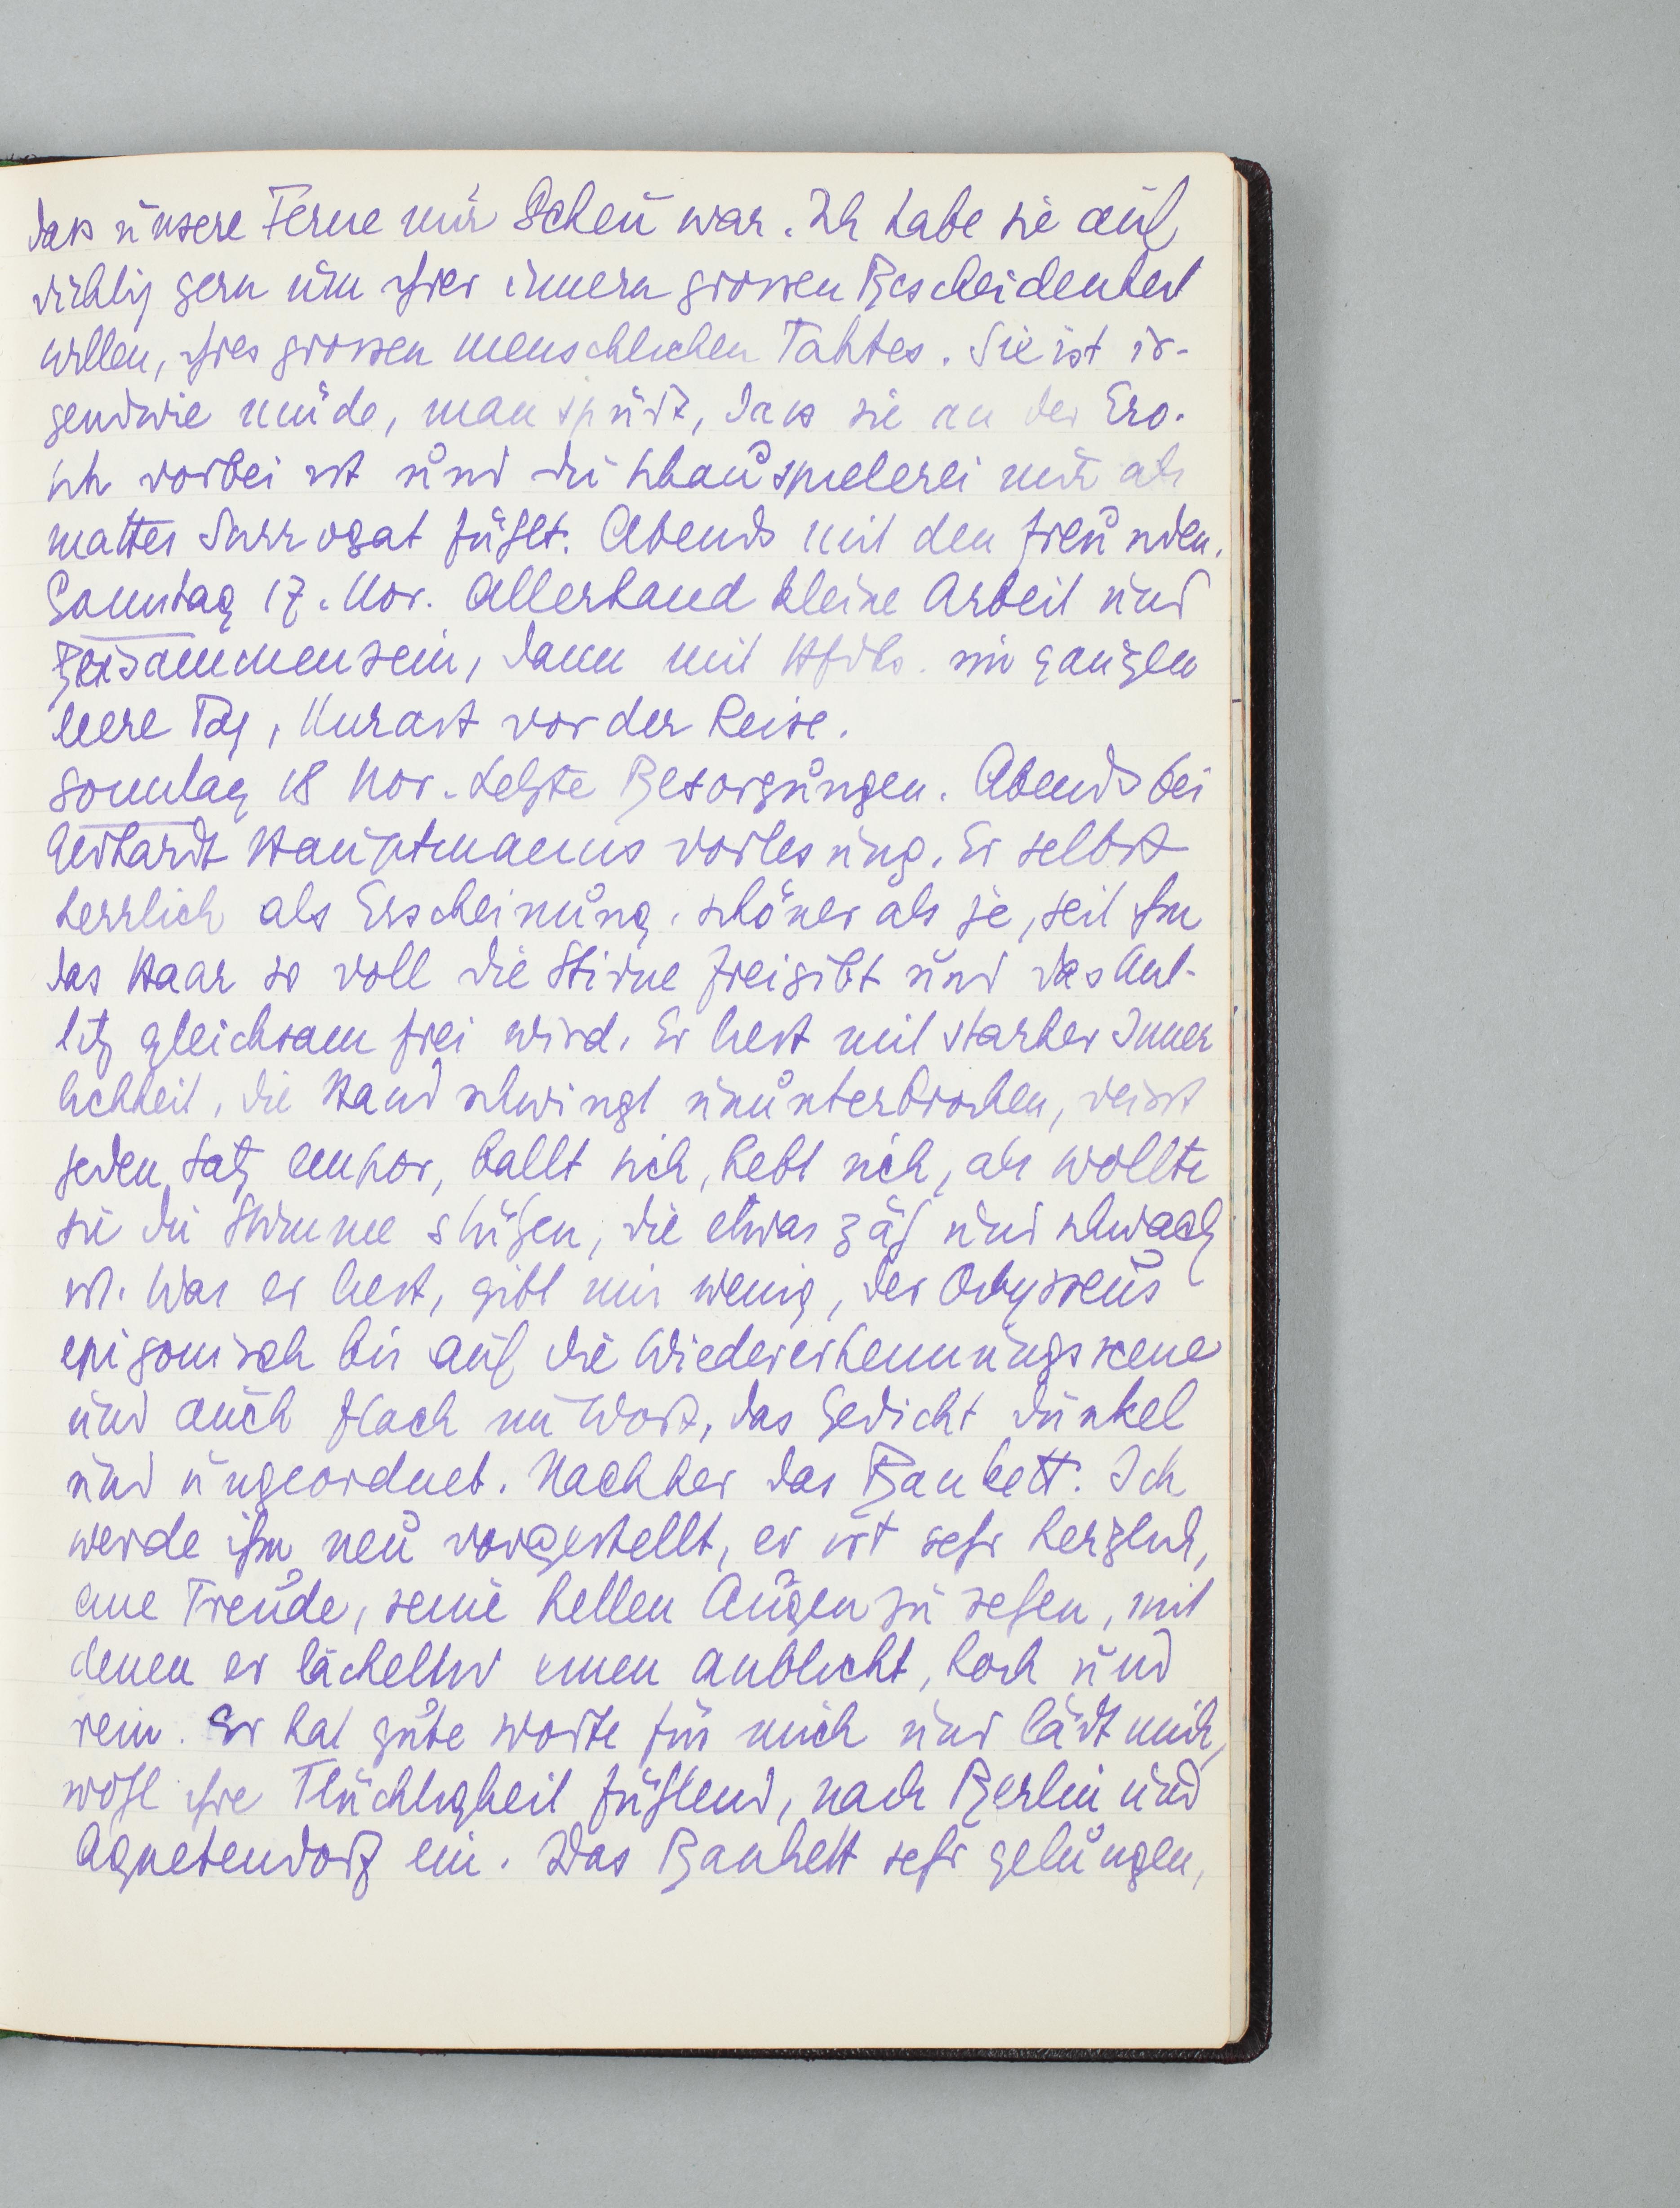 dass unsere Ferne nur Scheu war. Ich habe sie auf
richtig gern um ihrer innern grossen Bescheidenheit
willen, ihres grossen menschlichen Taktes. Sie ist ir-
gendwie müde, man spürt, dass sie an der Ero-
tik vorbei ist und die Schauspielerei nur als
mattes Surrogat fühlt. Abends mit den Freunden.
Samstag 17. Nov. Allerhand kleine Arbeit und
Beisammensein, dann mit im ganzen
leere Tag, Unrast vor der Reise.
Sonntag 18 Nov. Letzte Besorgungen. Abends bei
Gerhardt Hauptmanns Vorlesung. Er selbst
herrlich als Erscheinung, schöner als je, seit ihm
das Haar so voll die Stirne freigibt und das Ant-
litz gleichsam frei wird. Er liest mit starker Inner
lichkeit, die Hand schwingt ununterbrochen, reisst
jeden Satz empor, ballt sich, hebt sich, als wollte
sie die Stimme stützen, die etwas zäh und schwach
ist. Was er liest, gibt mir wenig, der Odysseus
epigonisch bis auf die Wiedererkennungsscene
und auch flach im Wort, das Gedicht dunkel
und ungeordnet. Nachher das Bankett. Ich
werde ihm neu vorgestellt, er ist sehr herzlich,
eine Freude, seine hellen Augen zu sehen, mit
denen er lächelnd einen anblickt, hoch und
rein. Er hat gute Worte für mich und lädt mich,
wohl ihre Flüchtigkeit fühlend, nach Berlin und
Agnetendorf ein. Das Bankett sehr gelungen,